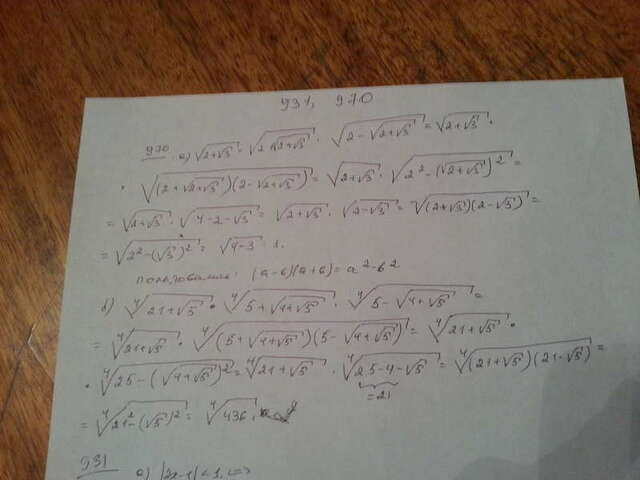 931, 970
970 а) √(2+√3) · √(2+√(2+√3)) · √(2-√(2+√3)) = √(2+√3) ·
· √((2+√(2+√3))(2-√(2+√3))) = √(2+√3) · √(2²-(√(2+√3))²) =
= √(2+√3) · √(4-2-√3) = √(2+√3) · √(2-√3) = √((2+√3)(2-√3)) =
= √(2²-(√3)²) = √(4-3) = 1.
(a-b)(a+b) = a²-b²
б) ⁴√(21+√5) · ⁴√(5+√(4+√5)) · ⁴√(5-√(4+√5)) =
= ⁴√(21+√5) · ⁴√((5+√(4+√5))(5-√(4+√5))) = ⁴√(21+√5) ·
· ⁴√(25-(√(4+√5))²) = ⁴√(21+√5) · ⁴√(25-4-√5) = ⁴√((21+√5)(21-√5)) =
=21
= ⁴√(21²-(√5)²) = ⁴√436.
931
а) |2x-1|<1, <=>